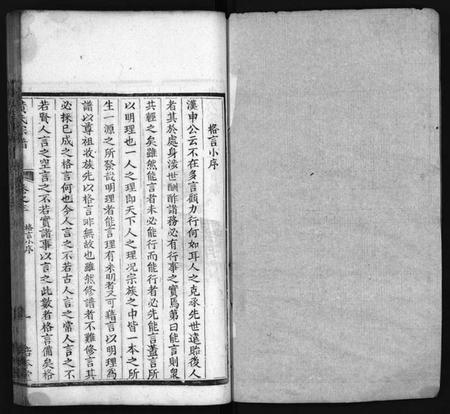 格言小序
漢申公云不在多言顧力行何如耳人之克承先世遠貽後人
者其於處身涉世酬酢諸務必有行事之實焉第曰能言則衆
共輕之矣雖然能言者未必能行而能行者必先能言蓋言所
以明理也一人之理即天下人之理况宗族之中皆一本之所
生一源之所發説明理者能言理有未明者又可藉言以明理焉
譜以尊祖收族先以格言非無故也雖然修譜者不難修言其
必採已成之格言何也今人言之不若古人言之常人言之不
若賢人言之空言之不若實諸事以言之此數者格言備矣格
氏宗譜
卷之
格言小序
一